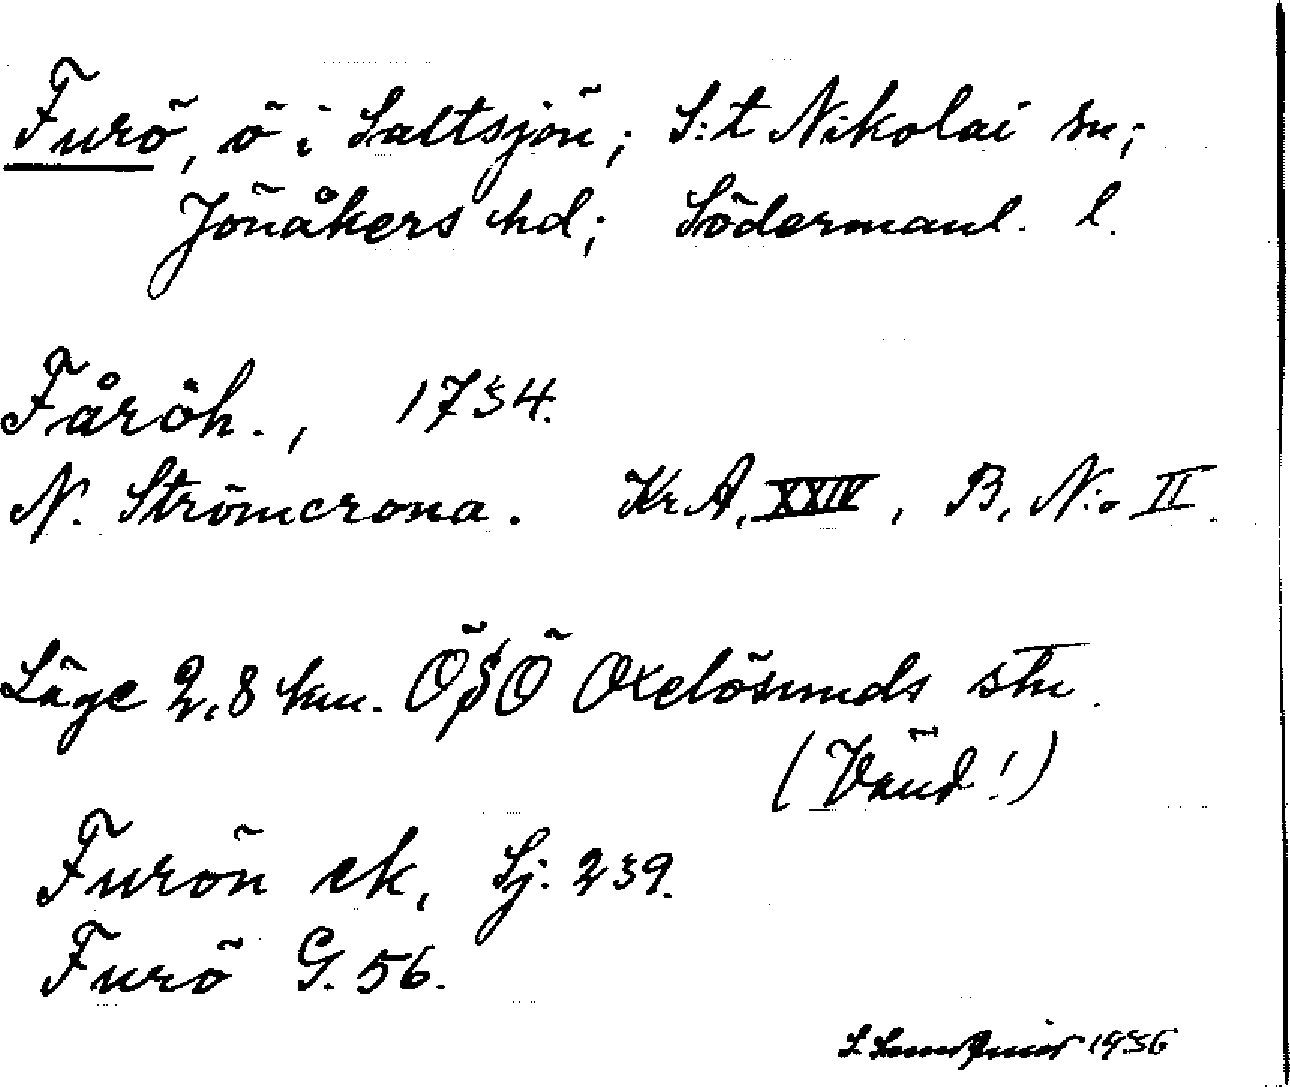 Furö, ö i Saltsjön; S:t Nikolai sn;
Jönåkers hd; Södermanl. l.
Fåröh., 1734.
N. Strömcrona. KrA, XXIV, B, N:o II.
Läge 2,8 km. ÖSÖ Oxelösunds stn.
(Vänd!)
Furön ek, Sj. 239.
Furö G. 56.
1936